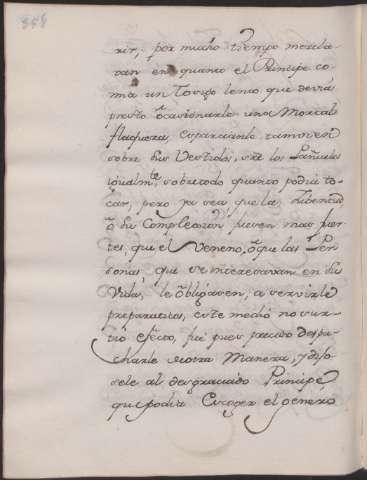 358
rir, por mucho tiempo mezcla-
van en quanto el Principe co-
mia un Tosigo lento que devia
presto ocasionarle una Mortal
flaqueza, esparciendo tambien
sobre sus Vestidos, sre los Pañuelos
igualmte, sobretodo quanto podia to-
car, pero ya sea que la
o su Complexion fuesen mas fuer-
tes, que el Veneno, o que las Per-
sonas, que se interesavan en su
Vida, le obligasen, a servirle
preparativas, este medio no sur-
tio efecto, fue pues preciso despa-
charle de otra Manera, y dixo-
sele al desgraciado Principe
que podia Escoger el genero